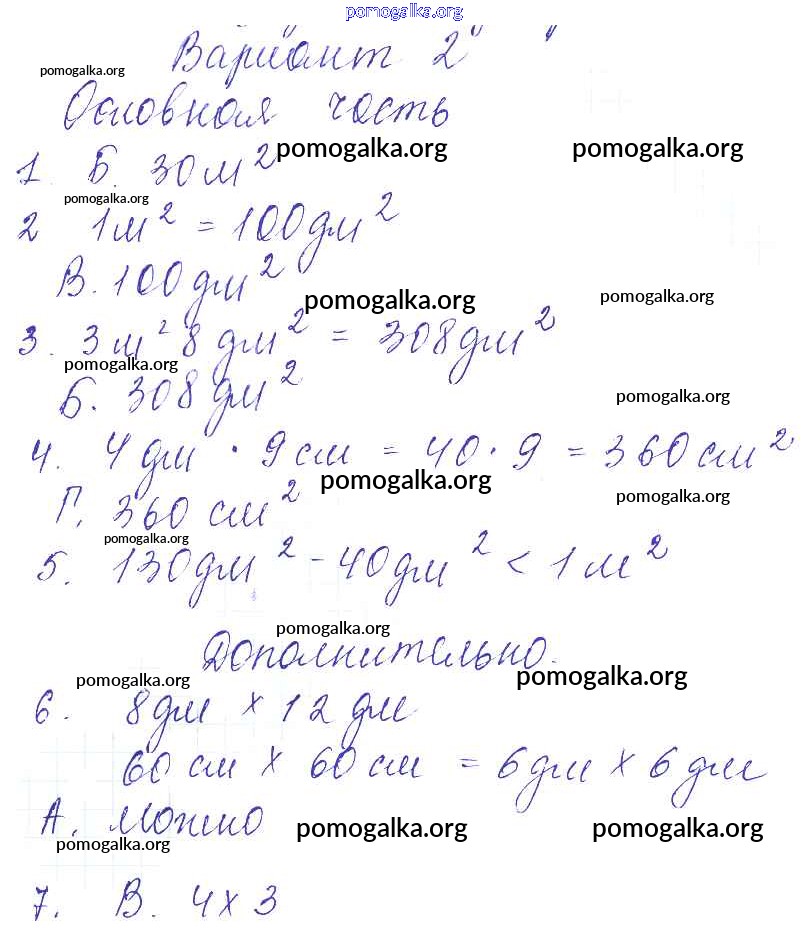 pomogalka.org
Вариант 2
pomogalka.org
Основная часть
pomogalka.org pomogalka.org
1. Б. 30 м²
pomogalka.org
2 1 м² = 100 дм²
В. 100 дм²
pomogalka.org pomogalka.org
3. 3 м² 8 дм² = 308 дм²
pomogalka.org
Б. 308 дм²
pomogalka.org
4. 4 дм · 9 см = 40 · 9 = 360 см²
pomogalka.org pomogalka.org
Г. 360 см²
pomogalka.org
5. 130 дм² - 40 дм² < 1 м²
pomogalka.org
Дополнительно.
pomogalka.org pomogalka.org
6. 8 дм х 12 дм
60 см х 60 см = 6 дм х 6 дм
А. Можно
pomogalka.org pomogalka.org
pomogalka.org
7. В. 4 х 3